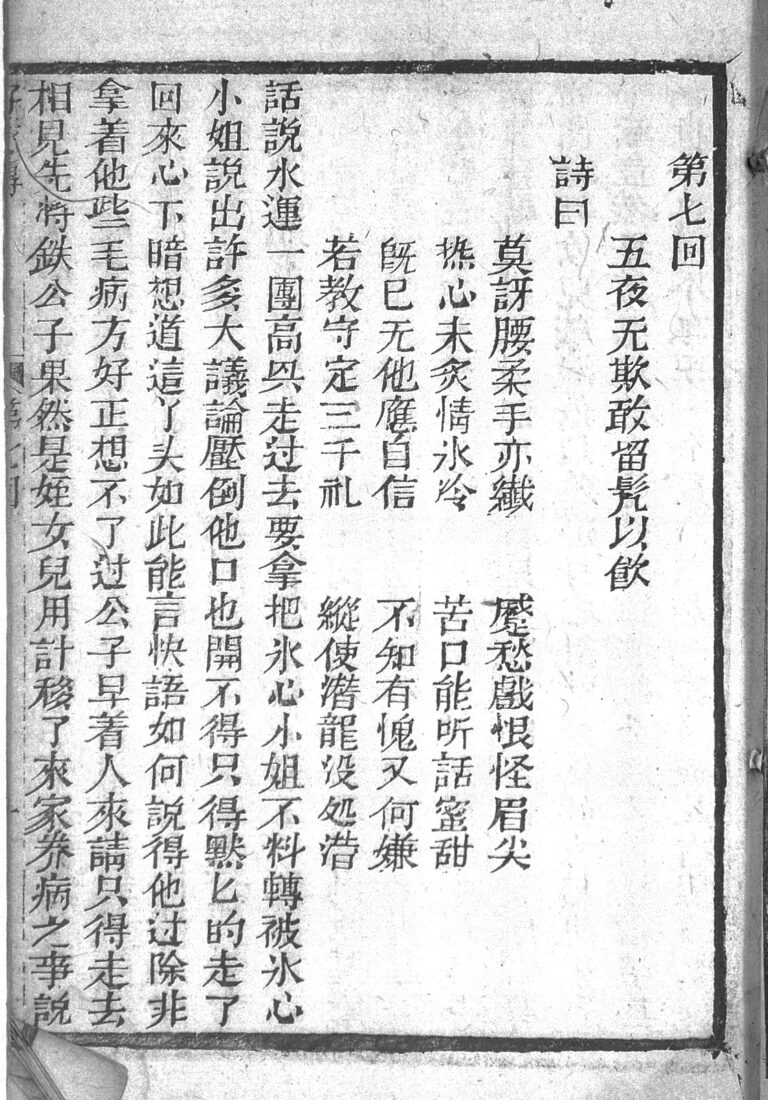 第七回
五夜无欺敢留髡以飲
詩曰
莫訝腰柔手亦纖 蹙愁戲恨怪眉尖
热心未炙情氷冷 苦口能听話蜜甜
既已无他應自信 不知有愧又何嫌
若教守定三千礼 縱使潛龍没処潛
話說水運一團高兴走过去要拿把氷心小姐不料轉被氷心
小姐說出許多大議論壓倒他口也開不得只得默匕的走了
回來心下暗想道這丫头如此能言快語如何說得他过除非
拿着他些毛病方好正想不了过公子早着人來請只得走去
相見先將鉄公子果然是姪女兒用計移了來家养病之事說